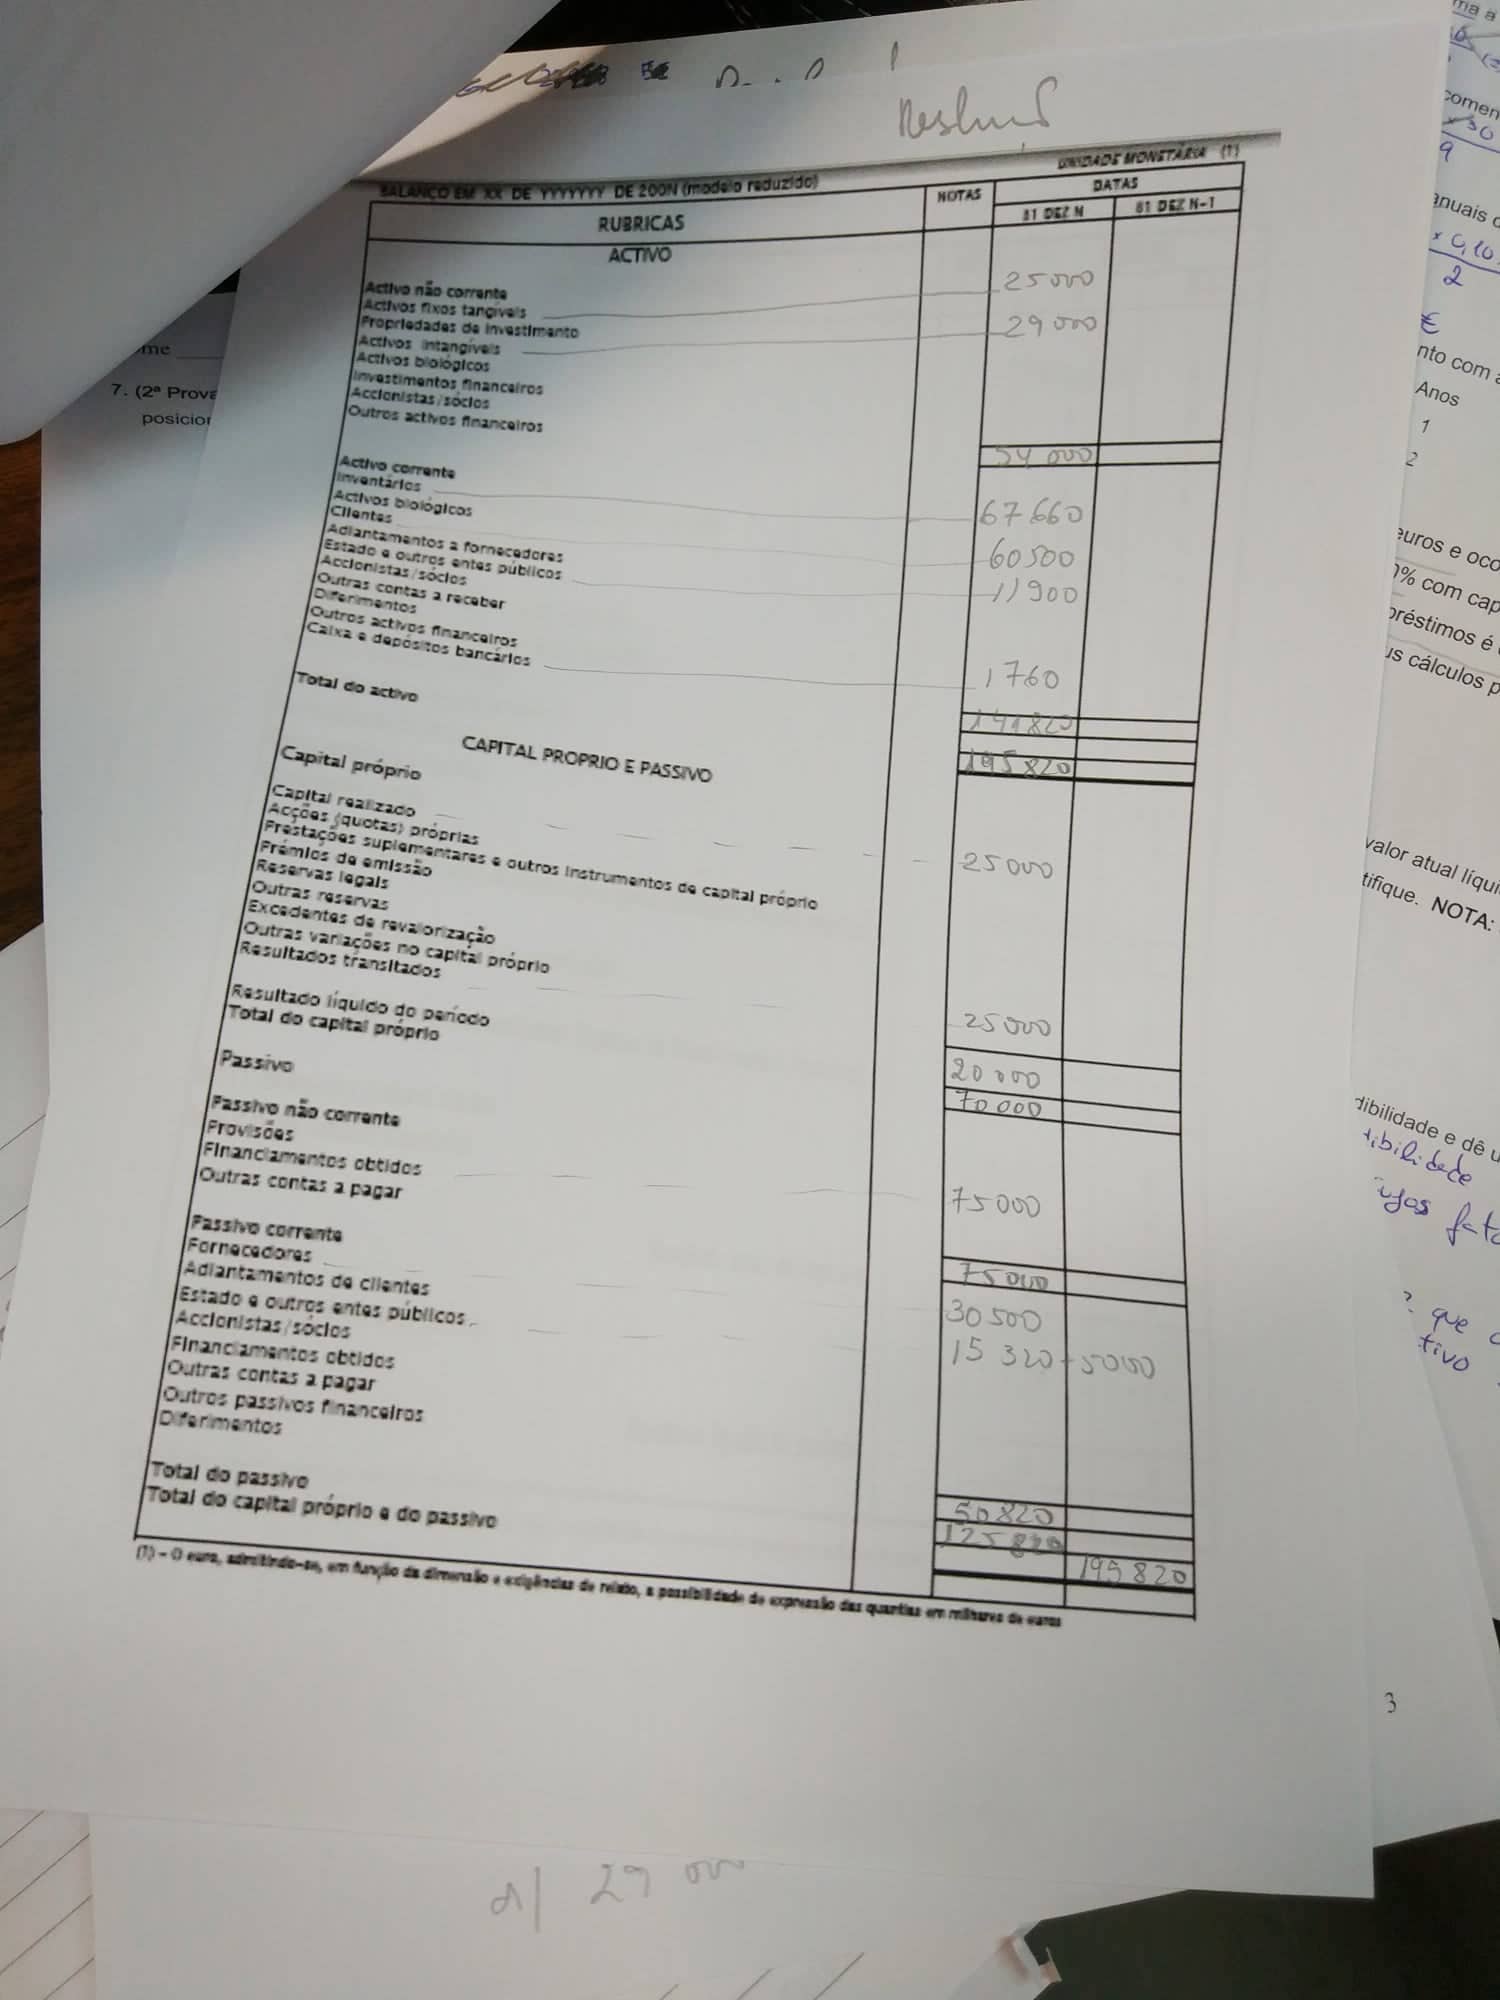 UNIDADE MONETÁRIA (1)
BALANÇO EM XX DE YYYYYYY DE 200N (modelo reduzido)
RUBRICAS
NOTAS
DATAS
31 DEZ N
31 DEZ N-1
ACTIVO
Activo não corrente
Activos fixos tangíveis 25000
Propriedades de investimento
Activos intangíveis 29000
Activos biológicos
Investimentos financeiros
Accionistas/sócios
Outros activos financeiros
54 000
Activo corrente
Inventários 67 660
Activos biológicos
Clientes 60500
Adiantamentos a fornecedores
Estado e outros entes públicos 11900
Accionistas/sócios
Outras contas a receber
Diferimentos
Outros activos financeiros
Caixa e depósitos bancários 1760
141820
Total do activo 195820
CAPITAL PROPRIO E PASSIVO
Capital próprio
Capital realizado 25000
Acções (quotas) próprias
Prestações suplementares e outros instrumentos de capital próprio
Prémios de emissão
Reservas legais
Outras reservas
Excedentes de revalorização
Outras variações no capital próprio
Resultados transitados 25000
Resultado líquido do período 20 000
Total do capital próprio 70 000
Passivo
Passivo não corrente
Provisões
Financiamentos obtidos 75000
Outras contas a pagar
75000
Passivo corrente
Fornecedores 30 500
Adiantamentos de clientes
Estado e outros entes públicos 15 320 + 5000
Accionistas/sócios
Financiamentos obtidos
Outras contas a pagar
Outros passivos financeiros
Diferimentos
50820
Total do passivo 125 820
Total do capital próprio e do passivo 195 820
(1) - O euro, admitindo-se, em função da dimensão e exigências de relato, a possibilidade de expressão das quantias em milhares de euros
7. (2ª Prova
posicion
comen
anuais
x 0,10
2
€
nto com a
Anos
1
2
euros e oco
% com cap
préstimos é
us cálculos p
valor atual líqui
tifique. NOTA:
dibilidade e dê u
tibilidade
que
tivo
3
29 000